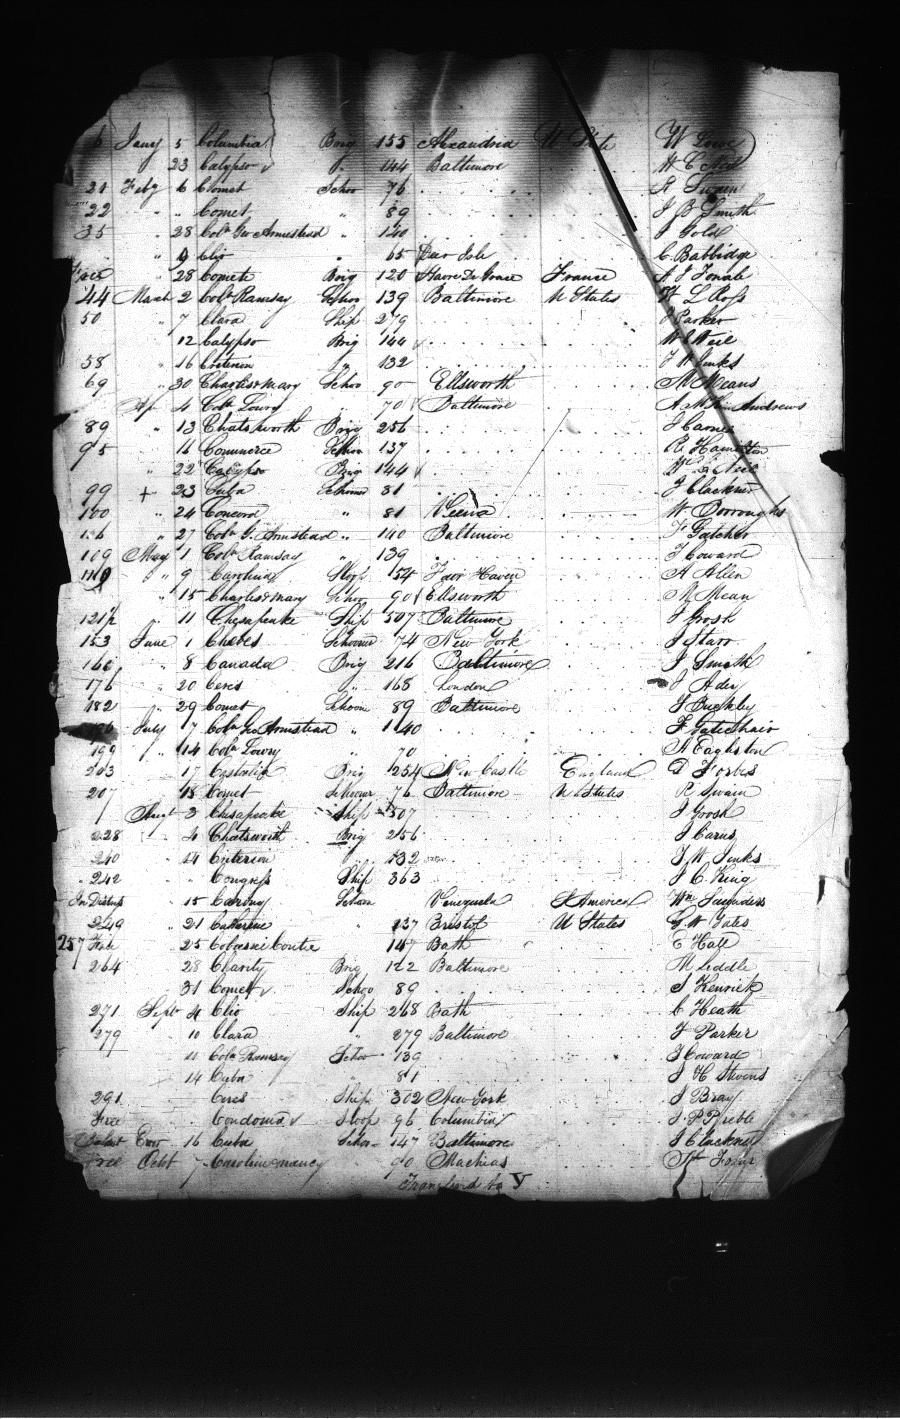 6 Jany 5 Columbia Brig 155 Alexandria U State W Lowe
23 Calypso 144 Baltimore W C Neil
21 Feby 6 Comet Schoo 76 R Swain
22 " " Comet " 89 J B Smith
35 " 28 Colo Geo Armistead " 140 J Gold
" 9 Clio " 65 Deer Isle C Babbidge
28 Comete Brig 120 Havre De Grace France
44 March 2 Colo Ramsay Schoo 139 Baltimore U States W L Ross
50 " 7 Clara Ship 279 J Parker
12 Calypso Brig 144 W C Neil
58 " 16 Criterion " 132 J W Jenks
69 " 30 Charles & Mary Schoo 90 Ellsworth M Means
Ap 4 Colo Lowry 70 Baltimore
89 " 13 Chatsworth Brig 256 J Carnes
95 16 Commerce Schoo 137 R Hamilton
" 22 Calypso Brig 144 Wm C Neil
99 + 23 Cuba Schooner 81 J Clackner
100 " 24 Concord " 81 Vienna W Borroughs
106 " 27 Colo G. Armstead " 140 Baltimore F Gatchar
109 May 1 Colo Ramsay " 139 J Coward
" 9 Carolina Sloop 154 Fair Haven A Allen
" 15 Charles & Mary Schoo 90 Ellsworth M Mean
121½ " 11 Chesapeake Ship 507 Baltimore J Grosh
153 June 1 Schooner 74 New York J Starr
166 " 8 Canada Brig 216 Baltimore J Smith
176 " 20 Ceres " 168 London J Adey
182 " 29 Comet Schoon 89 Baltimore J Buckley
July 7 Colo Geo Armstead " 140
199 " 14 Colo Lowry " 70 A Eagleston
203 17 Brig 254 New Castle England D Forbes
207 18 Comet Schooner 76 Baltimore U States R Swain
Augt 3 Chesapeake Ship 507 J Grosh
228 " 4 Chatsworth Brig 256 J Carns
240 14 Criterion " 132 J W Jenks
242 " Congress Ship 363 J C King
In Distress 15 Schoon Venezuela S America Wm Saunders
249 " 21 Catherine " 137 Bristol U States G W Yates
257 25 147 Bath E Hall
264 28 Charity Brig 122 Baltimore M Liddle
31 Comet Schoo 89 S Kenrick
271 Septr 4 Clio Ship 268 Bath C Heath
279 10 Clara " 279 Baltimore J Parker
11 Colo Ramsey Schoo 139 J Coward
14 Cuba " 81 J H Stevens
291 " Ceres Ship 302 New York J Bray
Free " Sloop 96 Columbia J P Preble
16 Cuba Schoo 147 Baltimore J Clackner
Free Octbr 7 Caroline & Nancy 90 Machias
Transferred to V